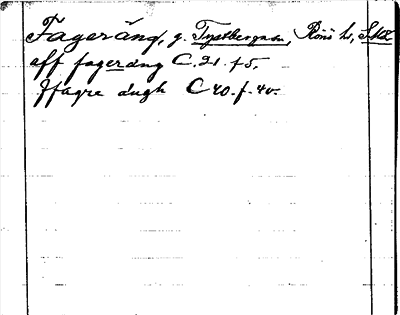 Fageräng, g. Tystberga sn, Rönö hd, Söd
aff fagerøng C. 21. f 5.
Ffagre ængh C 40. f. 40.